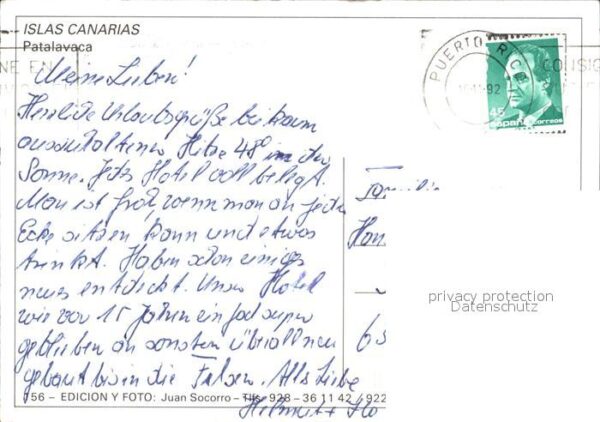 ISLAS CANARIAS
Patalavaca
PUERTO RICO
92
45
España correos
Meine Lieben!
Herzliche Urlaubsgrüße bei kaum
auszuhaltener Hitze 48° in der
Sonne. Jetzt Hotel voll belegt.
Man ist froh, wenn man an jeder
Ecke sitzen kann und etwas
trinkt. Haben schon einiges
neues entdeckt. Unser Hotel
wie vor 15 Jahren einfach super
geblieben an sonsten überall neu
gebaut bis in die Felsen. Alles Liebe
Helmut + Ilo
Familie
156 – EDICION Y FOTO: Juan Socorro – Tlfs: 928 – 36 11 42 / 922
privacy protection
Datenschutz